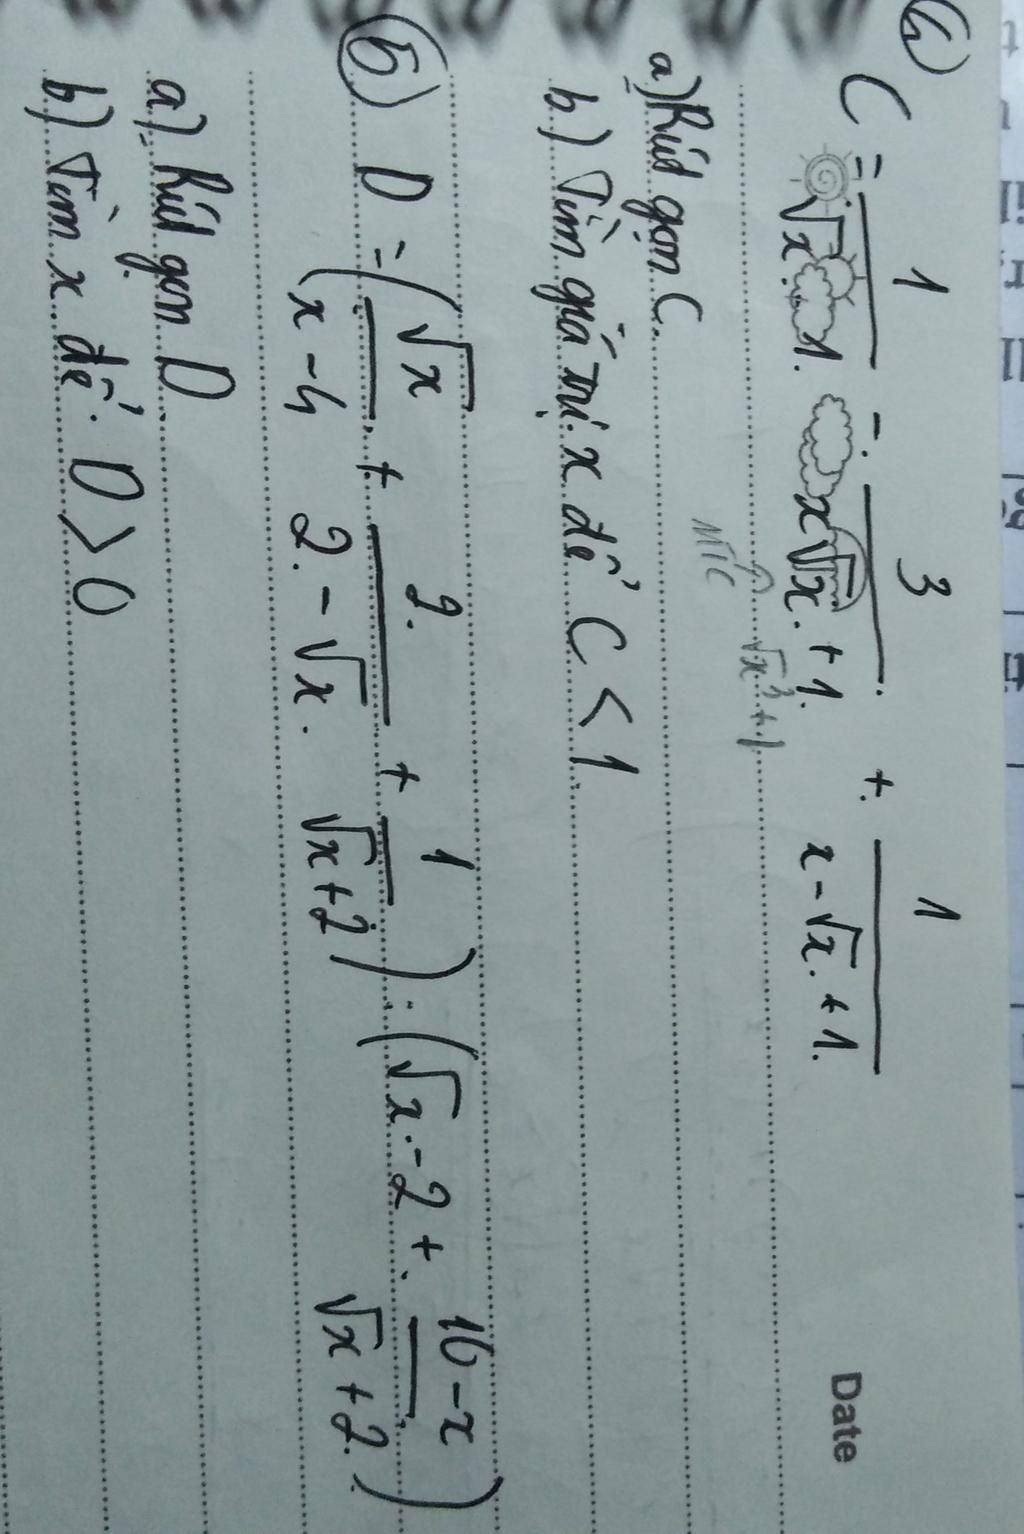 Date
④ C = 1/(√x + 1) - 3/(x√x + 1) + 1/(x - √x + 1)
MTC √x³ + 1
a) Rút gọn C.
b) Tìm giá trị x để C < 1
⑤ D = (√x/(x - 4) + 2/(2 - √x) + 1/(√x + 2)) : (√x - 2 + (16 - x)/(√x + 2))
a) Rút gọn D
b) Tìm x để D > 0